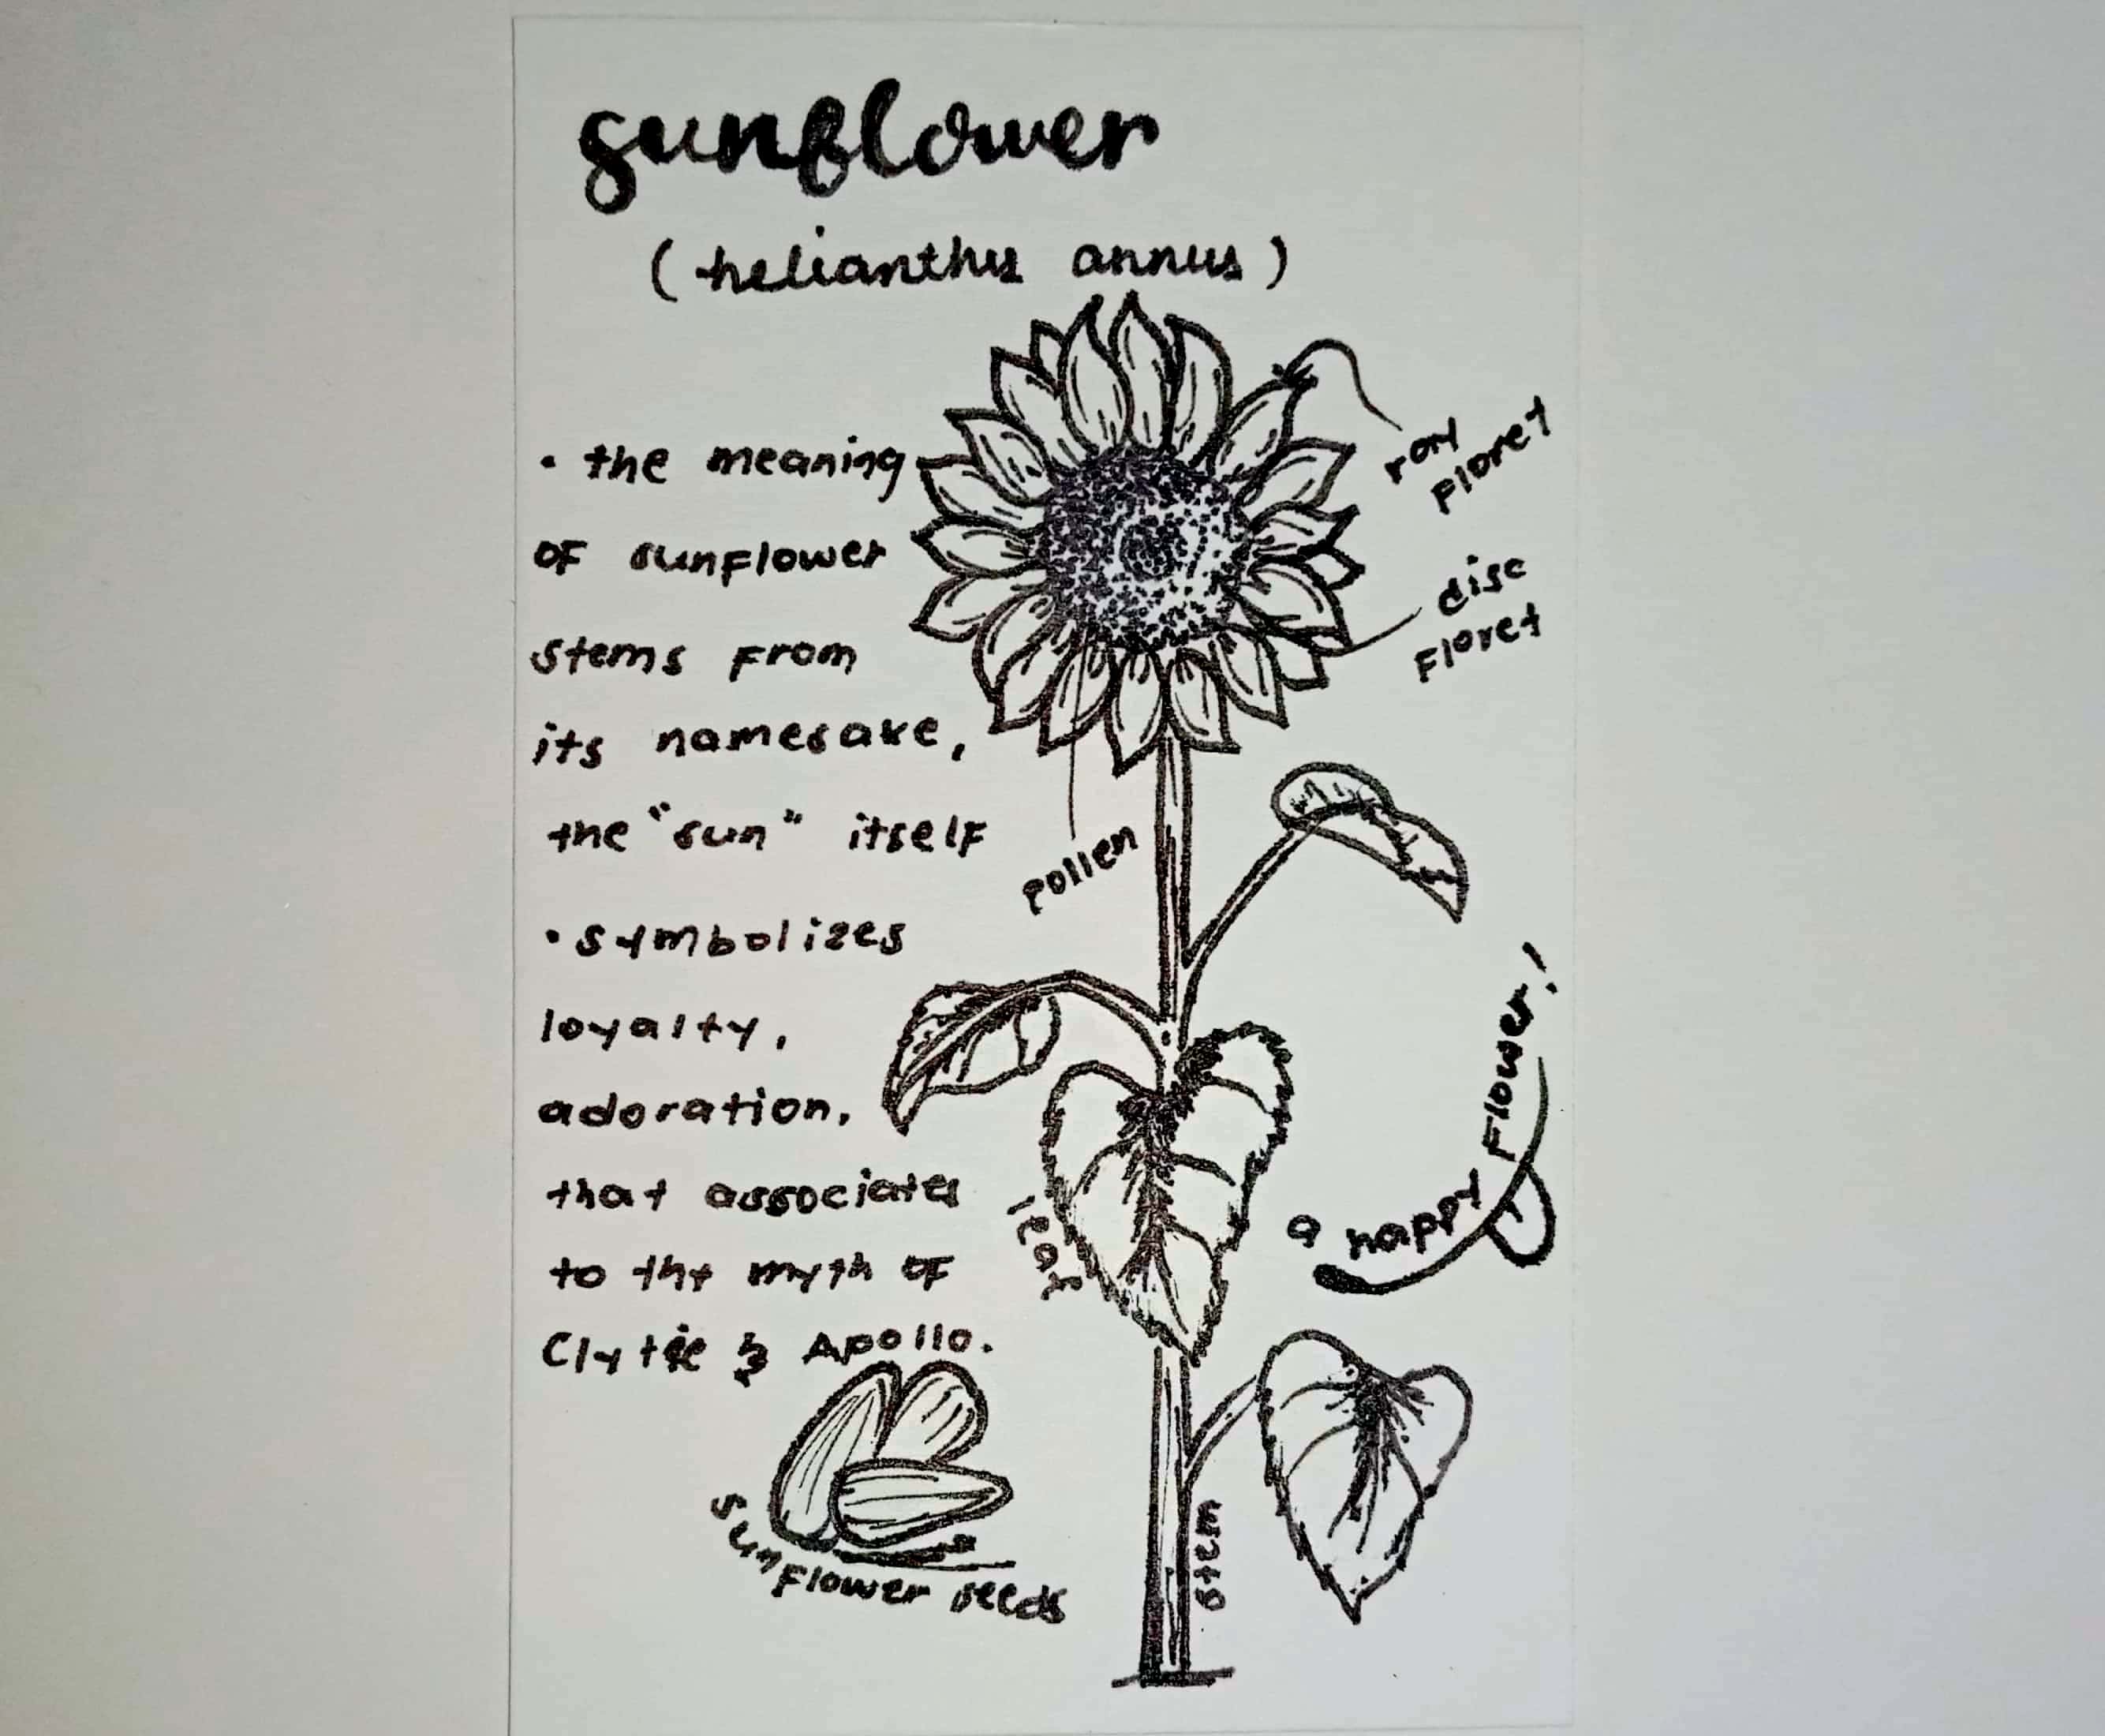 sunflower
(helianthus annus)
• the meaning
of sunflower
stems from
its namesake,
the "sun" itself
• symbolizes
loyalty,
adoration,
that associates
to the myth of
Clytie & Apollo.
ray
floret
disc
floret
pollen
leaf
a happy flower!
stem
sunflower seeds